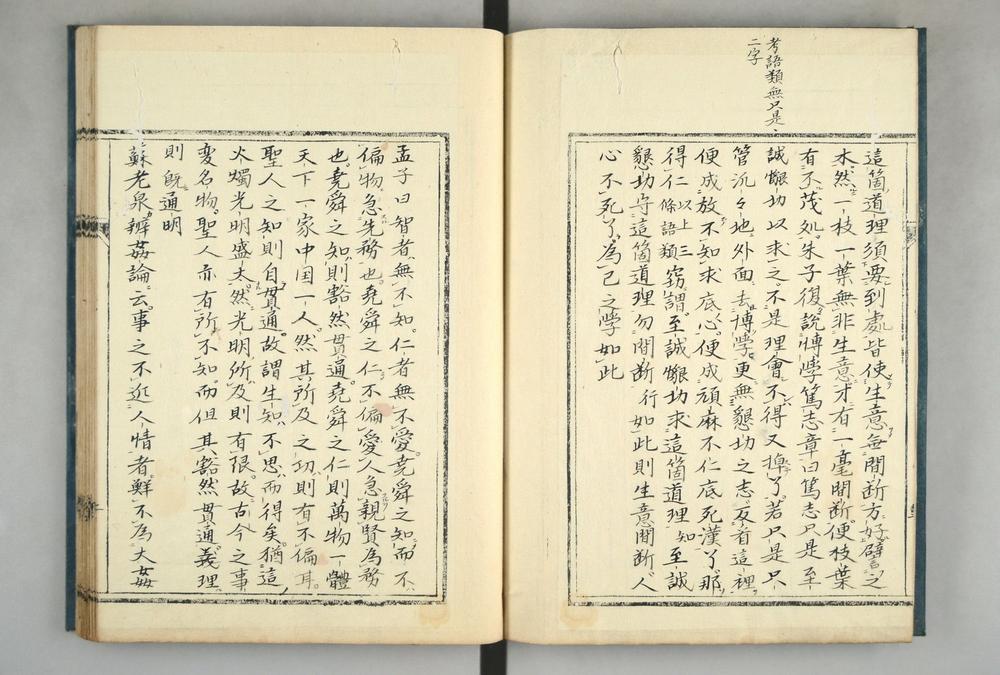 考語類無只是
二字
這箇道理須要到處皆使生意無間断方好譬之
木然一枝一葉無非生意才有一毫間断便枝葉
有不茂処朱子復説博學篤志章曰篤志只是至
誠懇切以求之不是理會不得又掉了若只是只
管汎々地外面去博學更無懇切之志反看這裡
便成放不知求底心便成頑麻不仁底死漢了那
得仁以上三條語類竊謂至誠懇切求這箇道理知至誠
懇切守這箇道理勿間断行如此則生意間断人
心不死了為己之學如此
孟子曰智者無不知仁者無不愛堯舜之知而不
偏物急先務也堯舜之仁不偏愛人急親賢為務
也堯舜之知則豁然貫通堯舜之仁則萬物一體
天下一家中国一人然其所及之功則有不偏耳
聖人之知則自貫通故謂生知不思而得矣猶這
火燭光明盛大然光明所及則有限故古今之事
変名物聖人亦有所不知而但其豁然貫通義理
則既通明
蘇老泉辨姦論云事之不近人情者鮮不為大姦